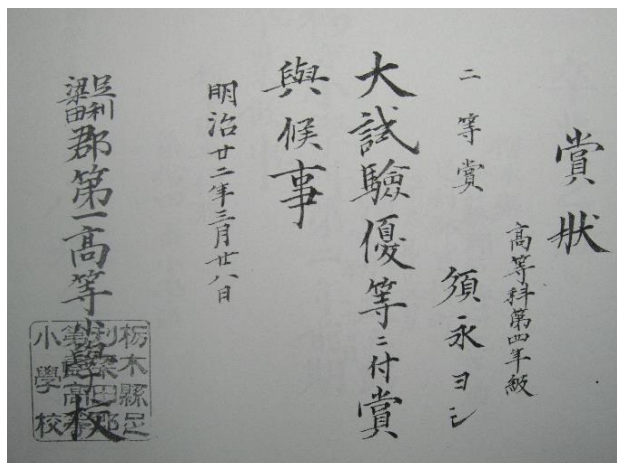 賞狀
高等科第四年級
二等賞 須永ヨシ
大試驗優等ニ付賞
與候事
明治廿二年三月廿八日
足利梁田郡第一高等小學校
栃木縣足
利梁田郡
第壹高等
小學校